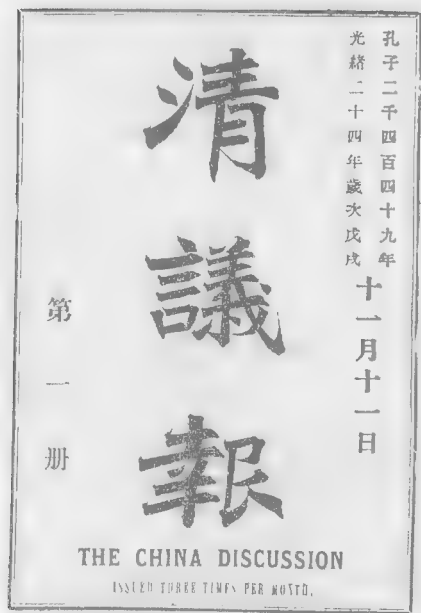 孔子二千四百四十九年
光緒二十四年歲次戊戌
十一月十一日
清議報
第一册
THE CHINA DISCUSSION
ISSUED THREE TIMES PER MONTH.